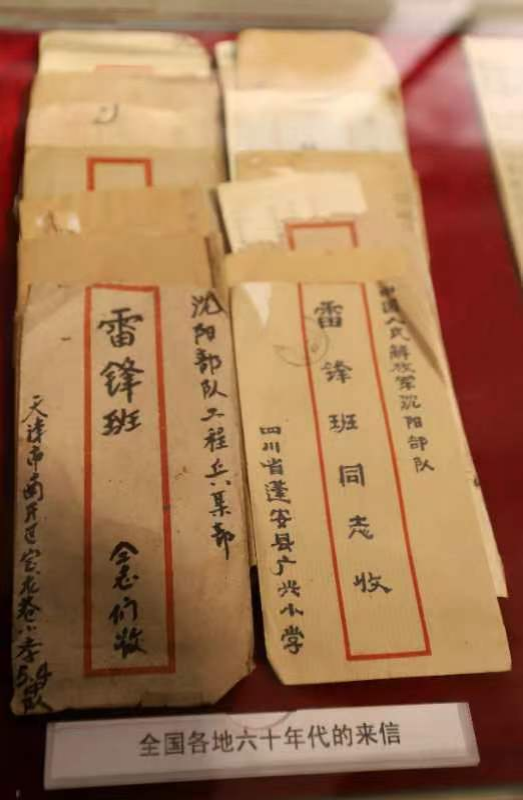 沈阳部队工程兵某部
雷锋班 仝志们收
天津市南开区宝龙巷小学5.4中队
中国人民解放军沈阳部队
雷锋班同志收
四川省蓬安县广兴小学
全国各地六十年代的来信